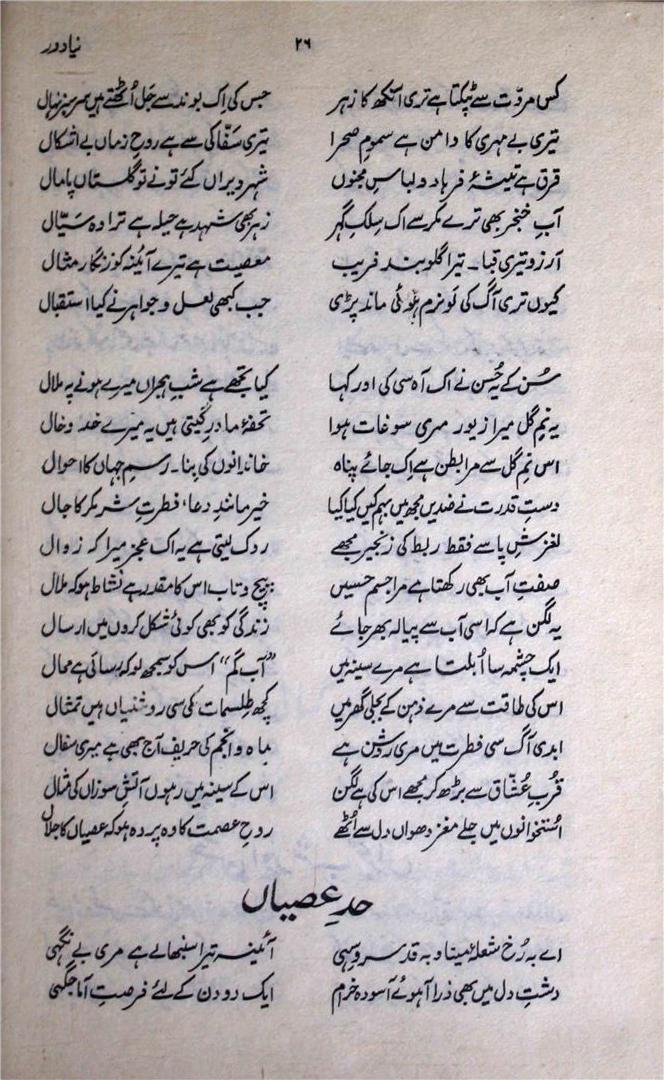 نیا دور ۲۶
کس مروّت سے ٹپکتا ہے تری آنکھ کا زہر جس کی اِک بوند سے جَل اُٹھتے ہیں سرسبز نہال
تیری بے مہری کا دامن ہے سمومِ صحرا تیری سَفّاکی سے ہے روحِ زماں بے اشکال
قرق ہے تیشۂ فرہاد و لباسِ مجنوں شہر ویراں کئے تو نے تو گلستاں پامال
آبِ خنجر بھی ترے مکر سے اک سِلکِ گہر زہر بھی شہد بے حیلہ ہے ترا وہ سَیّال
آرزو تیری قبا۔ تیرا گلوبند فریب معصیت ہے تیرے آئنہ کو زنگار مثال
کیوں تری آگ کی لَو نرم ہوئی ماند پڑی جب کبھی لعل و جواہر نے کیا استقبال
سُن کے یہ حُسن نے اک آہ سی کی اور کہا کیا تجھے ہے شبِ ہجراں میرے ہونے پہ ملال
یہ نمِ گل میرا زیور مری سوغات ہوا تحفۂ مادرِ گیتی ہیں یہ میرے خد و خال
اس نمِ گل سے مرا بطن ہے اِک جائے پناہ خاندانوں کی بنا۔ رسمِ جہاں کا احوال
دستِ قدرت نے ضدیں مجھ میں بہم کیں کیا کیا خیر مانندِ دعا، فطرتِ شر مکر کا جال
لغزشِ پا سے فقط ربط کی زنجیر مجھے روک لیتی ہے یہ اک عجز میرا کہ زوال
صفتِ آب بھی رکھتا ہے مرا جسمِ حسیں پیچ و تاب اس کا مقدر ہے نشاط ہو کہ ملال
یہ لگن ہے کہ اسی آب سے پیالہ بھر جائے زندگی کو بھی کوئی شکل کروں میں ارسال
ایک چشمہ سا اُبلتا ہے مرے سینہ میں "آبِ گم" اس کو سمجھ لو کہ رسائی ہے محال
اس کی طاقت سے مرے ذہن کے بجلی گھر میں کچھ طلسمات کی سی روشنیاں ہیں تمثال
ابدی آگ سی فطرت میں مری روشن ہے ماہ و انجم کی حریف آج بھی ہے میری سفال
قُربِ عُشّاق سے بڑھ کر مجھے اس کی ہے لگن اس کے سینہ میں رہوں آتشِ سوزاں کی مثال
اُستخوانوں میں جلے مغز دھواں دل سے اُٹھے روحِ عصمت کا وہ پردہ ہو کہ عصیاں کا جلال
حدِ عصیاں
اے بہ رُخ شعلۂ مینا و بہ قد سروِ سہی آئینہ تیرا سنبھالے ہے مری بے نگہی
دشتِ دل میں بھی ذرا آ ہوئے آسودہ خرام ایک دو دن کے لئے فرصتِ آماجگہی